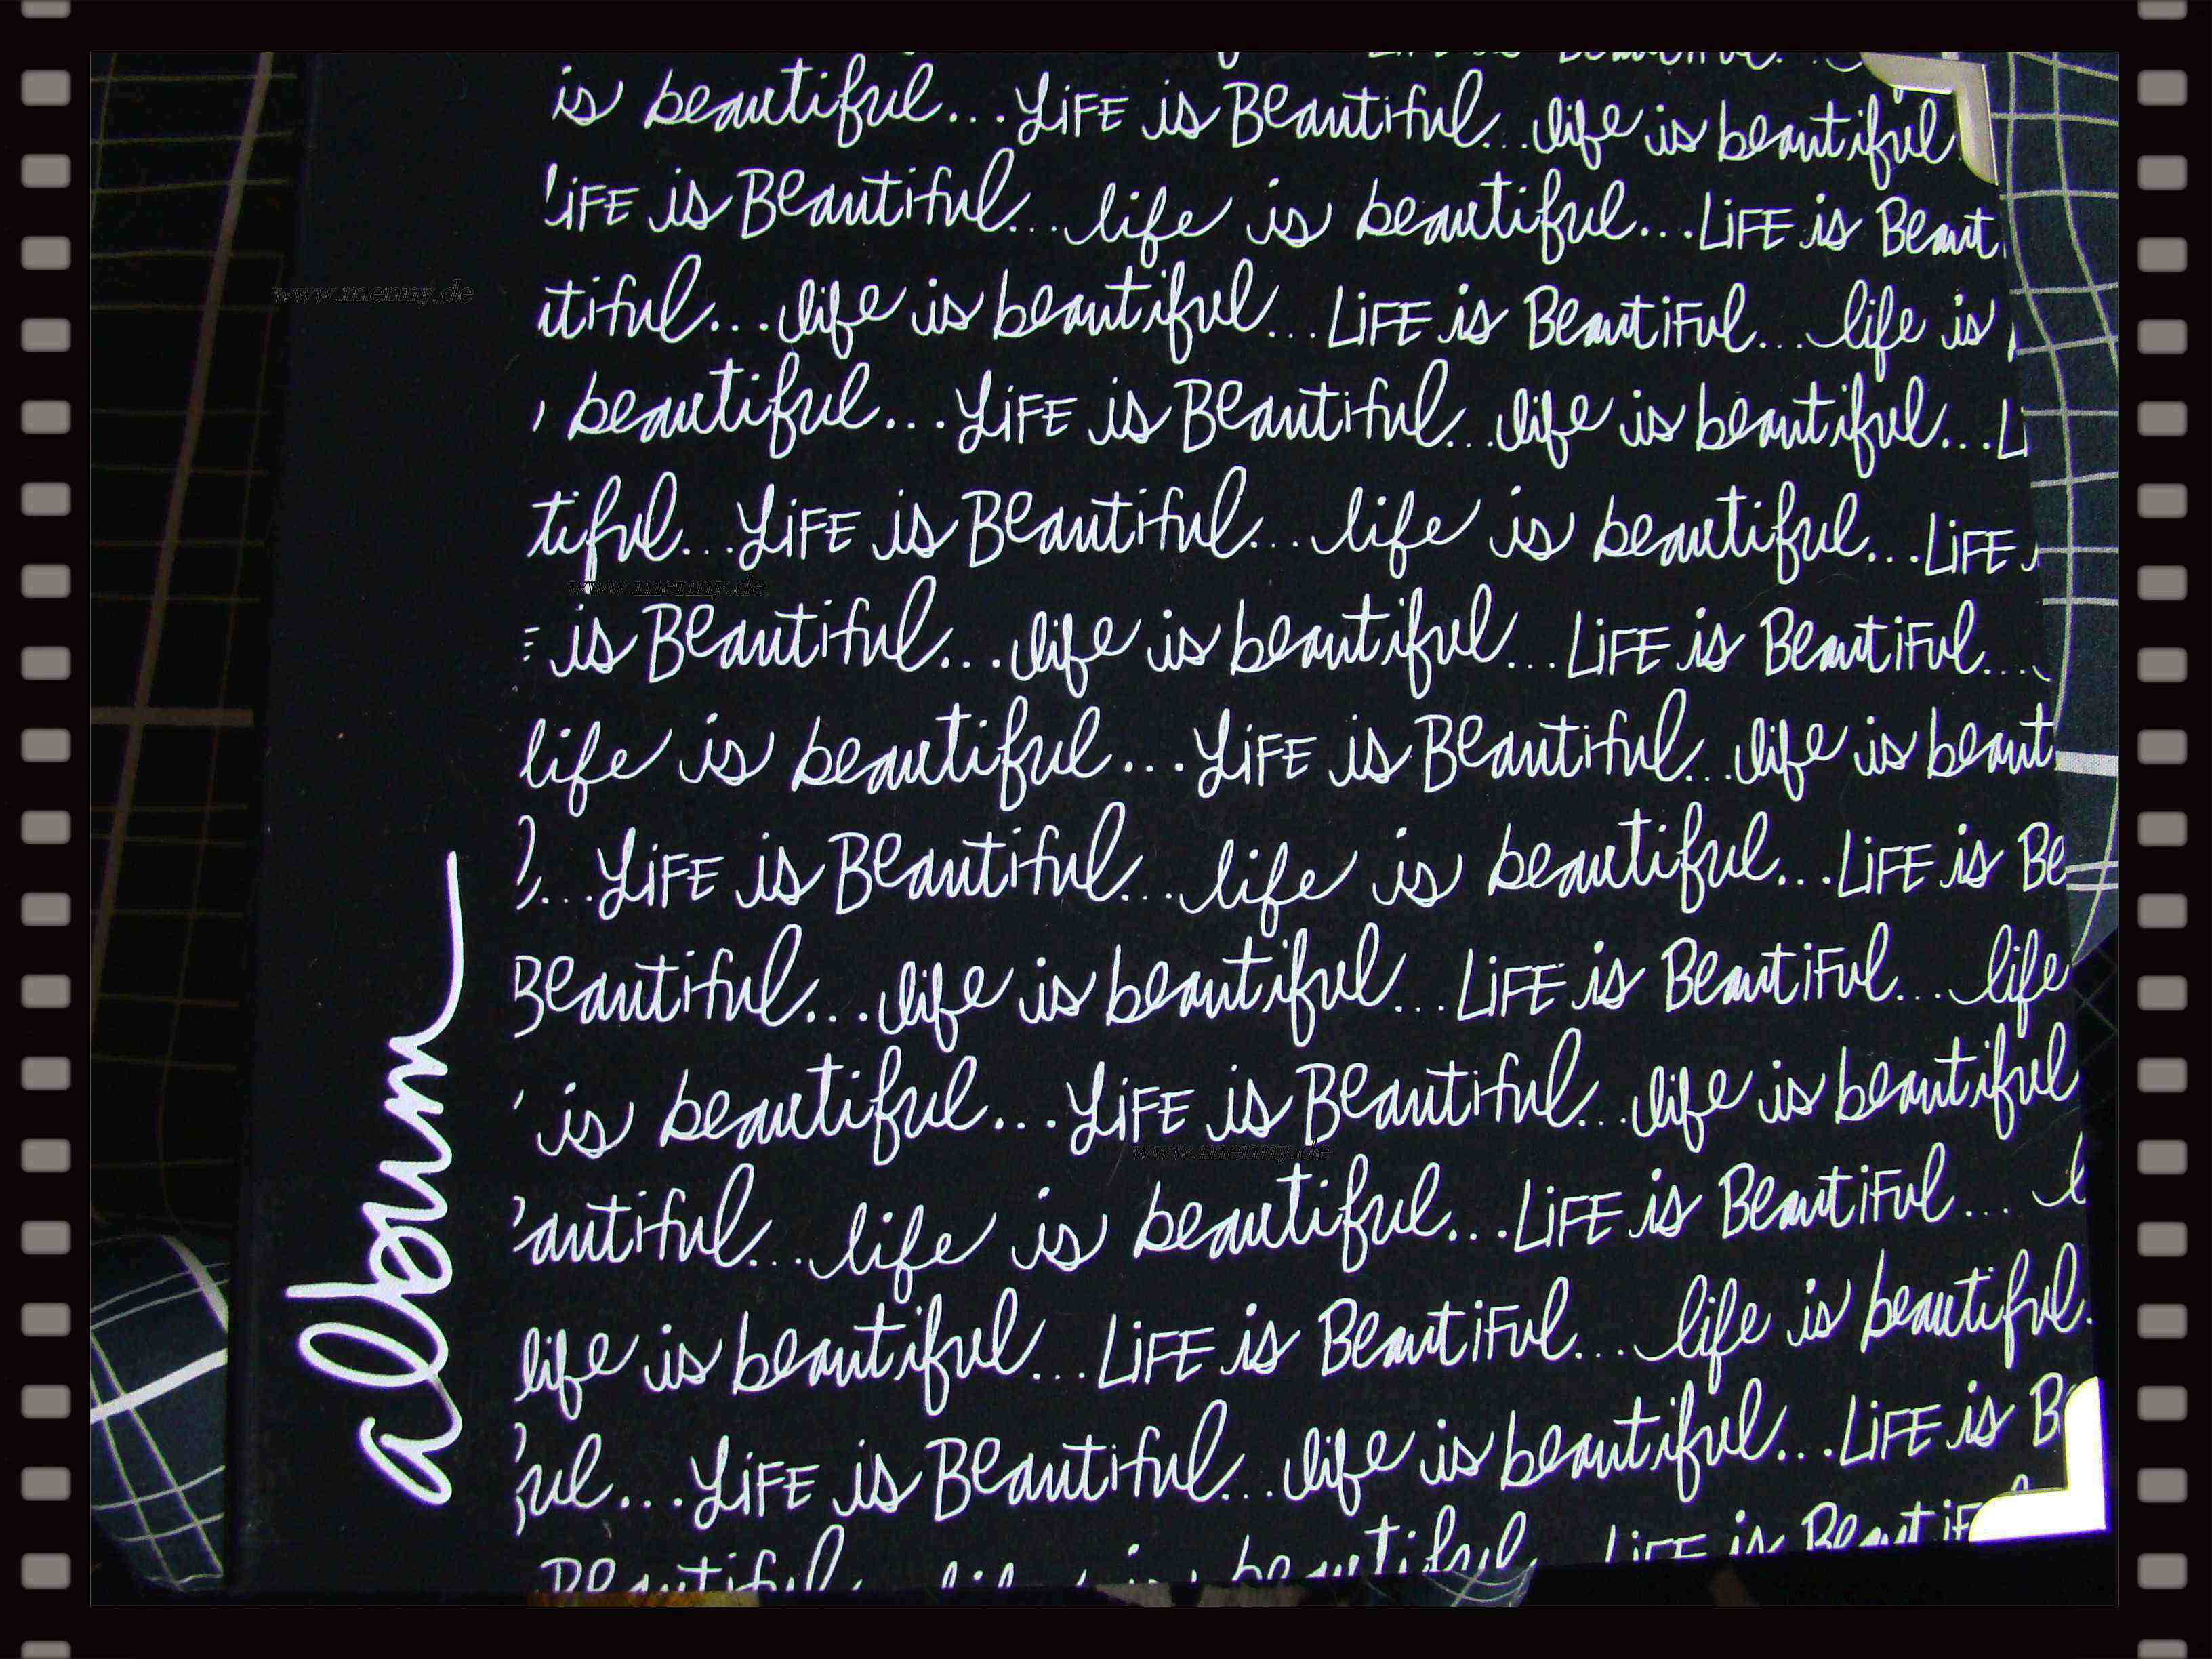 is beautiful...LiFE is Beautiful...life is beautiful
LiFE is Beautiful...life is beautiful...LiFE is Beaut
tiful...life is beautiful...LiFE is BeautiFul...life is
beautiful...LiFE is Beautiful...life is beautiful...Li
tiful...LiFE is Beautiful...life is beautiful...LiFE
is Beautiful...life is beautiful...LiFE is BeautiFul...
life is beautiful...LiFE is Beautiful...life is beaut
...LiFE is Beautiful...life is beautiful...LiFE is Be
Beautiful...life is beautiful...LiFE is BeautiFul...life
is beautiful...LiFE is Beautiful...life is beautiful
autiful...life is beautiful...LiFE is BeautiFul...l
life is beautiful...LiFE is BeautiFul...life is beautiful.
ful...LiFE is Beautiful...life is beautiful...LiFE is B
Beautiful...life is beautiful...LiFE is BeautiF
album
www.menny.de
www.menny.de
www.menny.de